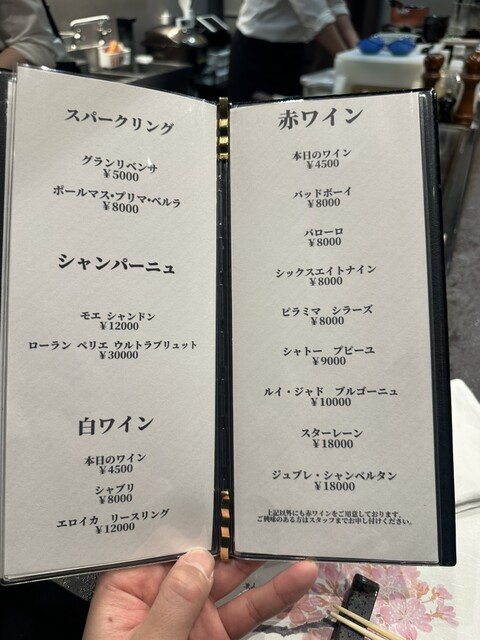 スパークリング
グランリベンサ
¥5000
ポールマス・プリマ・ペルラ
¥8000
シャンパーニュ
モエ シャンドン
¥12000
ローラン ペリエ ウルトラブリュット
¥30000
白ワイン
本日のワイン
¥4500
シャブリ
¥8000
エロイカ リースリング
¥12000
赤ワイン
本日のワイン
¥4500
バッドボーイ
¥8000
バローロ
¥8000
シックスエイトナイン
¥8000
ピラミマ シラーズ
¥8000
シャトー プピーユ
¥9000
ルイ・ジャド ブルゴーニュ
¥10000
スターレーン
¥18000
ジュブレ・シャンベルタン
¥18000
上記以外にも赤ワインをご用意しております。
ご興味のある方はスタッフまでお申し付けください。